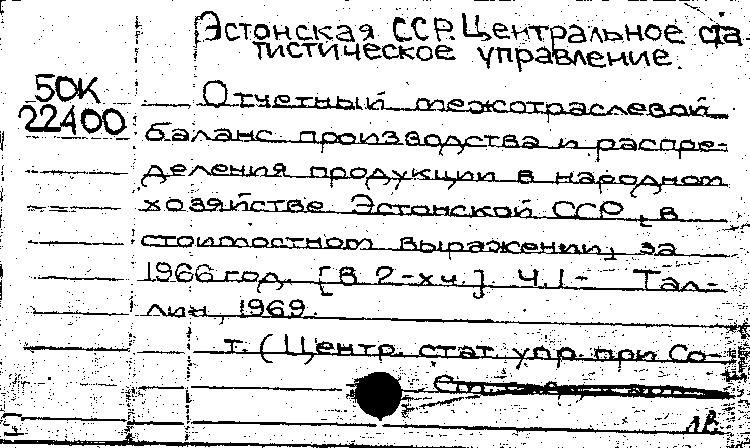 Эстонская ССР. Центральное ста-
тистическое управление.
50К
22400
Отчетный межотраслевой
баланс производства и распре-
деления продукции в народном
хозяйстве Эстонской ССР, в
стоимостном выражении, за
1966 год. [В 2-х ч.]. Ч.1- Тал-
лин, 1969.
т. (Центр. стат. упр. при Со-